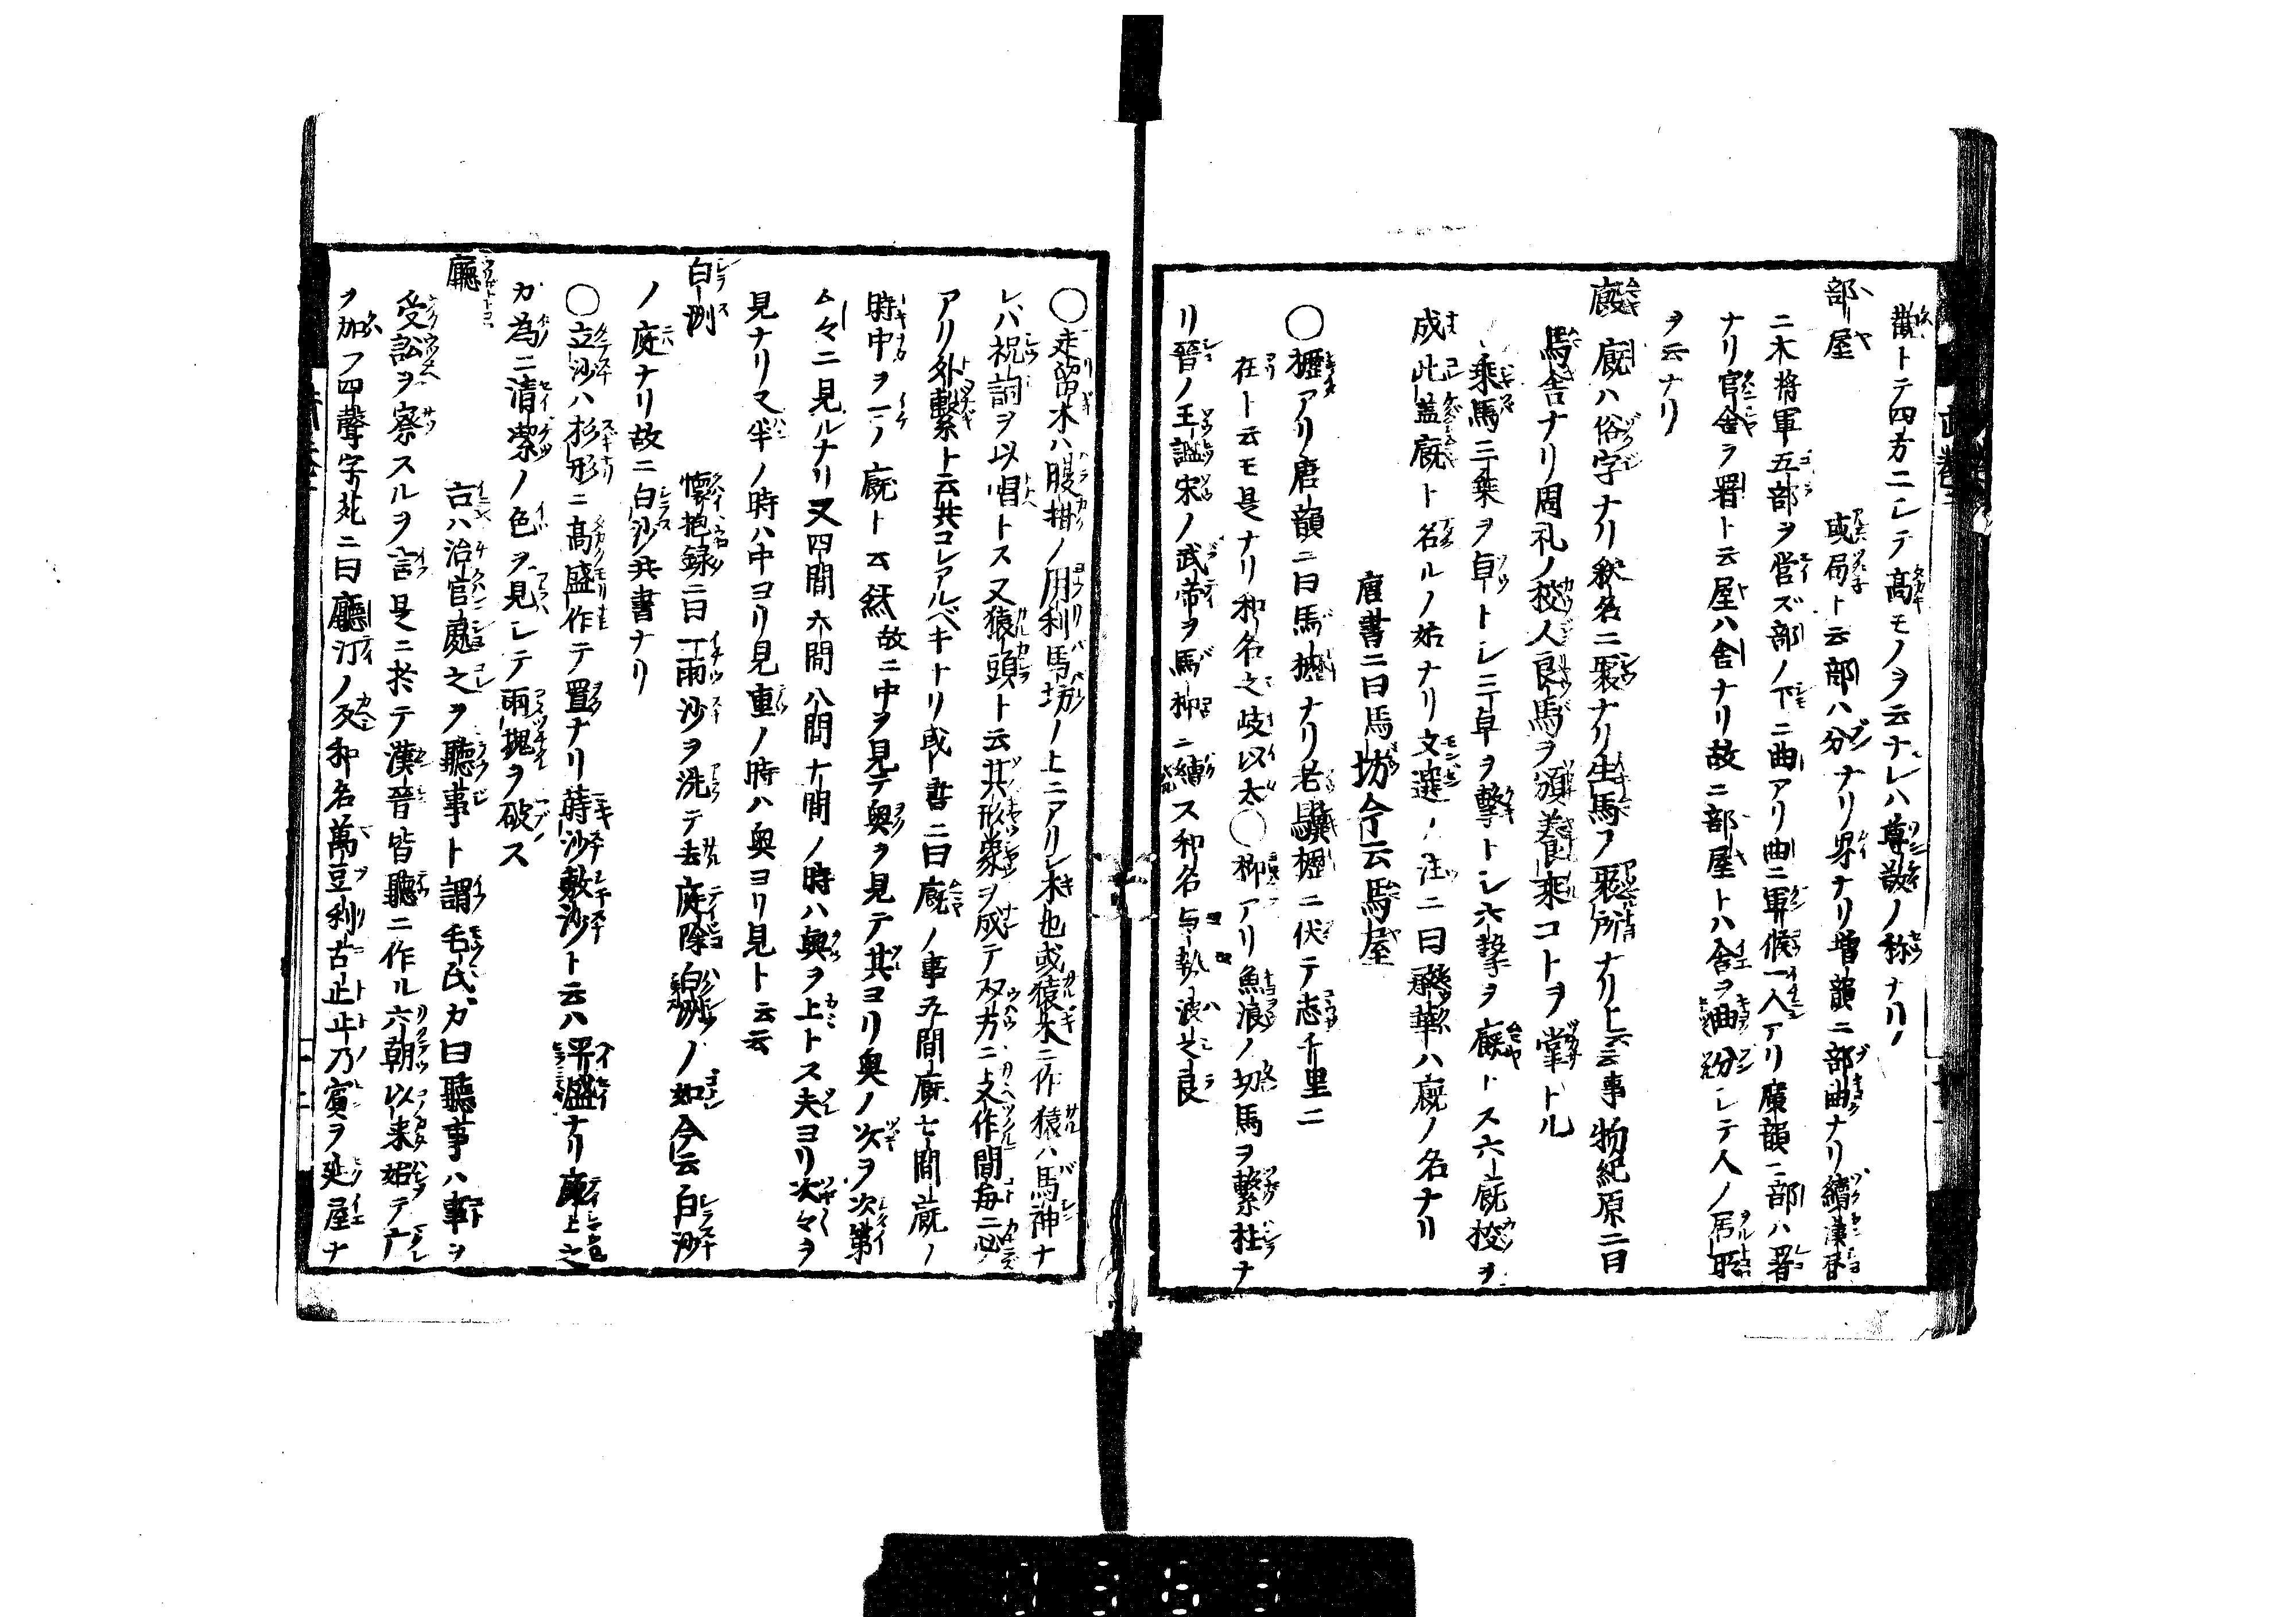 散トテ四方ニシテ高モノヲ云ナレハ尊敬ノ称ナリ
部屋 或局ト云部ハ分ナリ界ナリ増韻ニ部曲ナリ續漢書
ニ大将軍五部ヲ営ズ部ノ下ニ曲アリ曲ニ軍候一人アリ廣韻ニ部ハ署
ナリ官舎ヲ署ト云屋ハ舎ナリ故ニ部屋トハ舎ヲ曲分シテ人ノ居所
ヲ云ナリ
廏 廐ハ俗字ナリ釈名ニ聚ナリ生馬ノ聚所ナリ上云云事物紀原ニ曰
馬舎ナリ周礼ノ校人良馬ヲ頒養乗コトヲ掌トル
乗馬三乗ヲ皁トシ三皁ヲ繋トシ六繋ヲ廏トス六廐校ヲ
成此蓋廐ト名ルノ始ナリ文選ノ注ニ曰承華ハ廐ノ名ナリ
唐書ニ曰馬坊今云馬屋
〇櫪アリ唐韻ニ曰馬櫪ナリ老驥櫪ニ伏テ志千里ニ
在ト云モ是ナリ和名之岐以太〇枊アリ魚浪ノ切馬ヲ繋柱ナ
リ晉ノ王謐宋ノ武帝ヲ馬枊ニ縛ス和名与勢波之良
〇走留木ハ腹掛ノ用利馬坊ノ上ニアリシ木也或猿木ニ作猿ハ馬神ナ
レバ祝詞ヲ以唱トス又猿頭ト云其形象ヲ成テ双方ニ上支作間毎ニ必
アリ外繋ト云共コレアルベキナリ或書ニ曰廐ノ事五間廐七間廐ノ
時中ヲ一ノ廐ト云然故ニ中ヲ見テ奥ヲ見テ其ヨリ奥ノ次ヲ次第
々々ニ見ルナリ又四間六間八間十間ノ時ハ奥ヲ上トス夫ヨリ次々ヲ
見ナリマ半ノ時ハ中ヨリ見重ノ時ハ奥ヨリ見ト云云
白洲 懐抱録ニ曰一雨沙ヲ洗テ去庭除白洲ノ如今云白沙
ノ庭ナリ故ニ白沙共書ナリ
〇立沙ハ杉形ニ高盛作テ置ナリ蒔沙敷沙ト云ハ平盛ナリ庭上之
カ為ニ清潔ノ色ヲ見シテ雨塊ヲ破ス
廳 古ハ治官處之ヲ聽事ト謂毛氏カ曰聽事ハ事ヲ
受訟ヲ察スルヲ言是ニ於テ漢晉皆聽ニ作ル六朝以来始テ广
ヲ加フ四聲字苑ニ曰廳汀ノ反和名萬豆利古止止乃賓ヲ延屋ナ